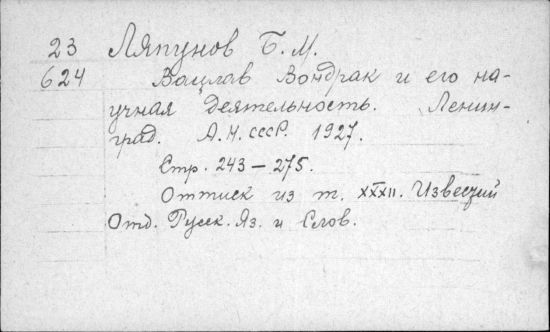 23 Ляпунов Б. М.
624 Вацлав Вондрак и его на-
учная деятельность. Ленин-
град. А.Н. СССР. 1927.
Стр. 243 – 275.
Оттиск из т. XXXII. Известий
Отд. Русск. Яз. и Слов.